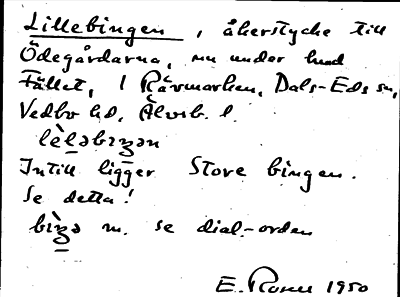 Lillebingen, åkerstycke till
Ödegårdarna, nu under hmd
Fället, i Rävmarken, Dals-Eds sn,
Vedbo hd, Älvsb. l.
lèləbɪŋən
Intill ligger Store bingen.
Se detta!
bìŋə m. se dial.-orden
E. 1950